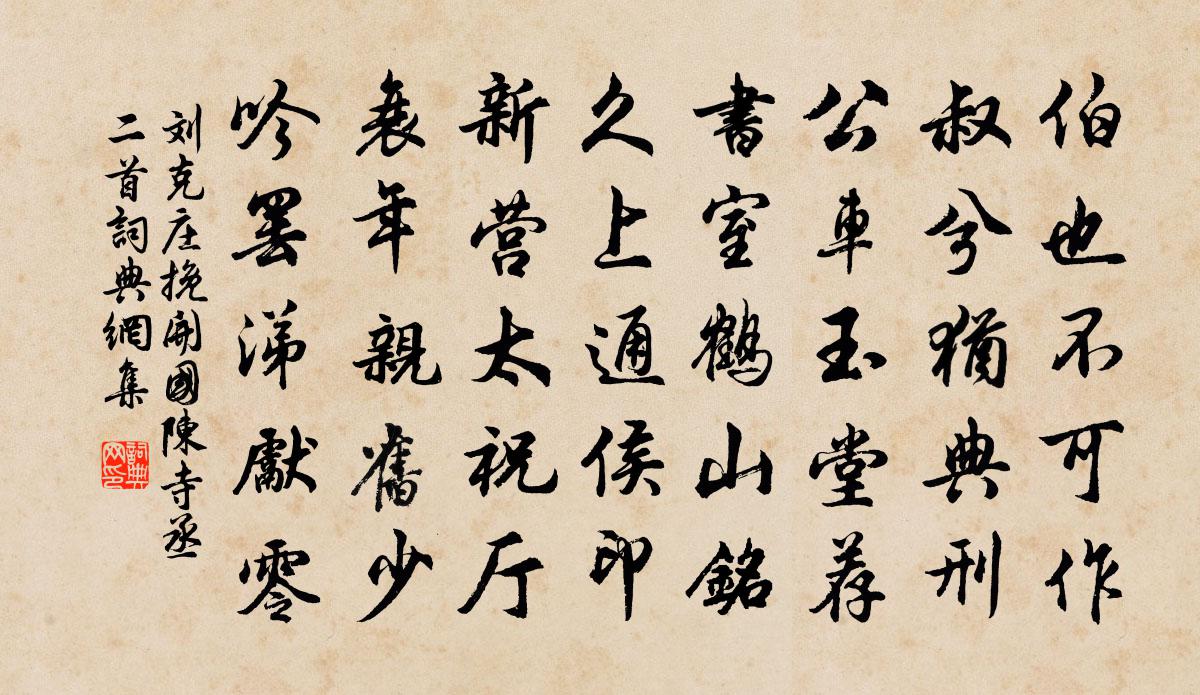 伯也不可作
叔兮猶典刑
公車玉堂荐
書室鶴山銘
久上通侯印
新营太祝厅
衰年親舊少
吟罢涕獻零
刘克庄挽開國陳寺丞
二首詞典網集
詞典网印